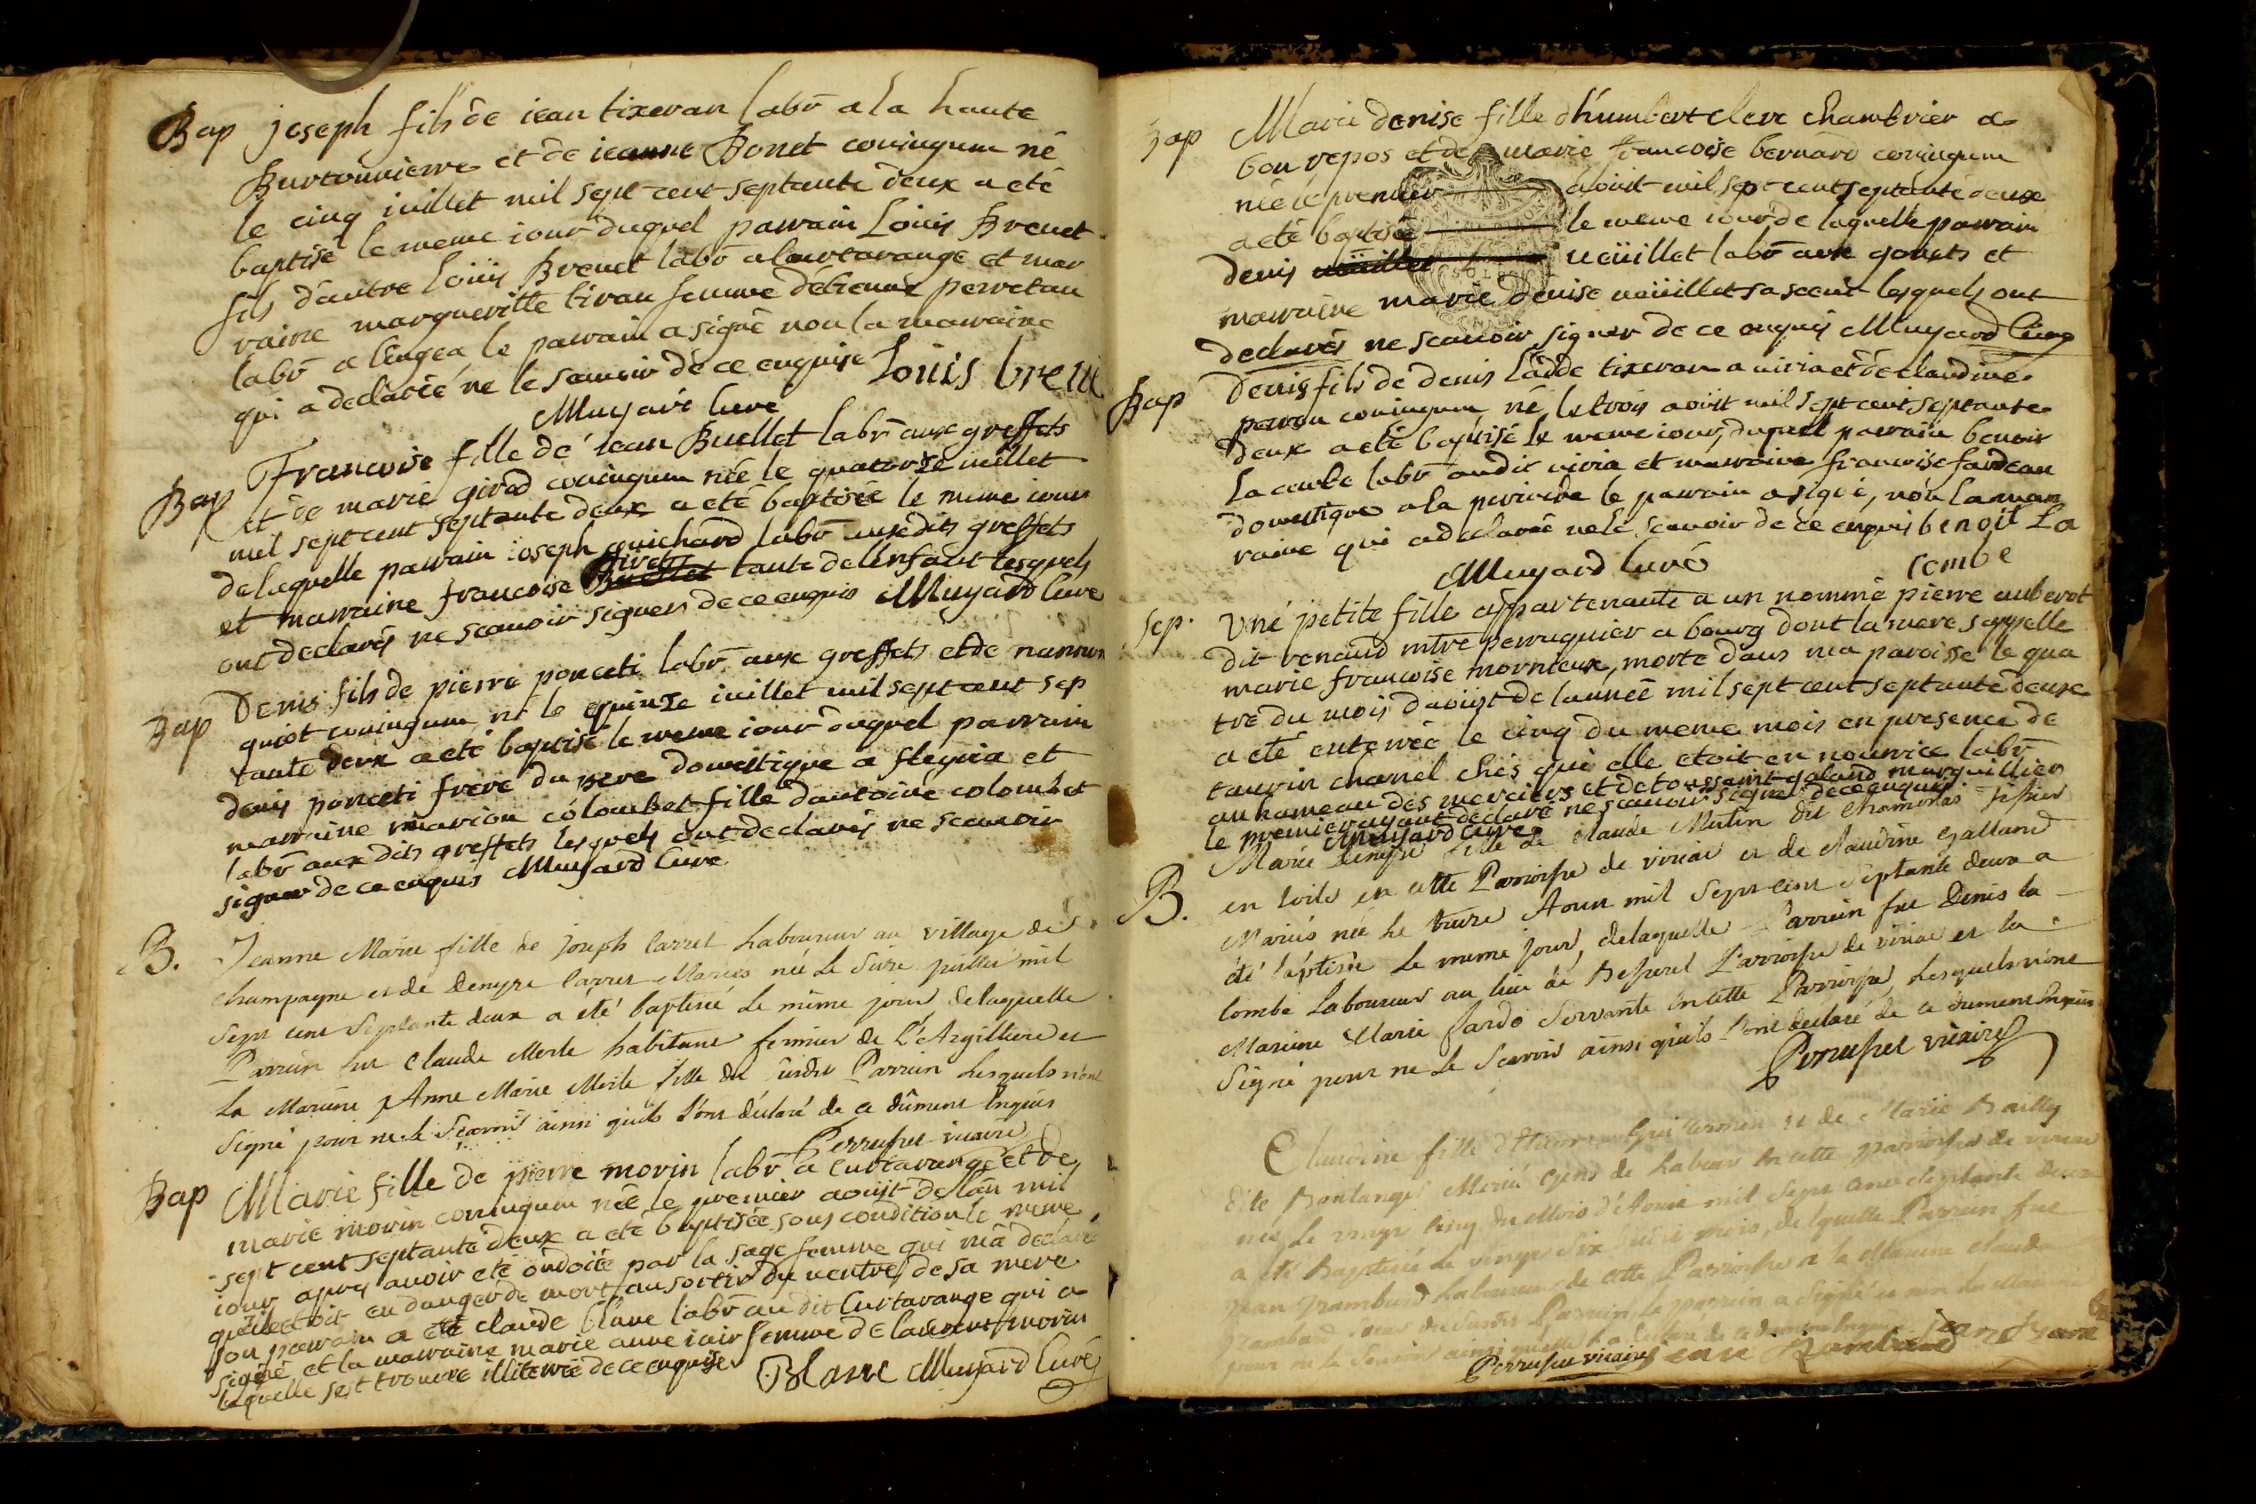 Bap joseph fils de iean tixeran labr a la haute
Burtonniere et de ieanne Bonet coniugum né
le cinq iuillet mil sept cent septante deux a eté
baptisé le meme iour duquel parrain Louis Brenet
fils d'autre Louis Brenet labr a Curtarange et mar
raine margueritte tiran femme d'étienne perretan
labr a l'engea le parrain a signé non la marraine
qui a declaréé ne le scavoir de ce enquise Louis brenet
Muyard Cure
Bap Francoise fille de iean Buellet labr aux greffets
et de marie girod coniugum née le quatorze iuillet
mil sept cent septante deux a eté baptisée le meme iour
de laquelle parrain ioseph guichard labr ausedits greffets
et marraine francoise tante de lenfant lesquels
ont declarés ne scavoir signer de ce enquis Muyard Cure
Bap Denis fils de pierre ponceti labr aux greffets et de
quiot coniugum né le quinze iuillet mil sept cent sep
tante deux a eté baptisé le meme iour duquel parrain
denis ponceti frere du pere domestique a fleyria et
marraine marion colombet fille dantoine colombet
labr aux dits greffets lesquels ont declarés ne scavoir
signer de ce enquis Muyard Cure
B. Jeanne Marie fille de Joseph Carret Laboureur au village de
Champagne et de Denyse Carret Mariés née Le Seize juillet mil
Sept cent Septante deux a été baptisée Le même jour delaquelle
Parrain fut Claude Merle habitant fermier de L'Argilliere et
La Maraine Anne Marie Merle fille du susdit Parrain Lesquels n'ont
Signé pour ne Le Scavoir ainsi qu'ils L'ont déclaré de ce dûment Enquis
Perruset vicaire
Bap Marie fille de pierre morin labr a Curtarange et de
marie morin coniugum née le premier aoust de lan mil
sept cent septante deux a eté baptisée sous condition le meme
iour apres avoir eté ondoiée par la sage femme qui m'a declaré
quelle etoit en danger de mort au sortir du ventre de sa mere
son parrain a eté claude blanc labr au dit Curtarange qui a
signé et la marraine marie anne iair femme de laurent morin
laquelle sest trouvée illiterée de ce enquise Blanc Muyard Curé
Bap Marie denise fille d'humbert clerc chambrier a
bon repos et de marie francoise bernard coniugum
née le premier aoust mil sept cent septante deux
a eté baptisée le meme iour de laquelle parrain
denis ueüillet labr aux gonets et
marraine marie denise ueüillet sa soeur lesquels ont
declarés ne scavoir signer de ce enquis Muyard Cure
Bap Denis fils de denis Ladde tixeran a viria et de claudine
perron coniugum né le trois aoust mil sept cent septante
deux a eté baptisé le meme iour, duquel parrain benoit
La combe labr audit viria et marraine francoise fardean
domestique a la le parrain a signé, non la mar
raine qui a declarée ne le scavoir de ce enquis benoit La
combe
Muyard Curé
Sep. Une petite fille appartenante a un nommé pierre auberot
dit renaud mtre perruquier a bourg dont la mere sappelle
marie francoise mornieux, morte dans ma paroisse le qua
tre du mois daoust de lannee mil sept cent septante deux
a eté enterrée le cinq du meme mois en presence de
taurin charnel chés qui elle etoit en nourrice labr
au hameau des merciers et de toussaint galand marguillier
le premier ayant declaré ne scavoir signer de ce enquis
Muyard Cure
B. Marie denyse fille de Claude Mutin dit Chamonas tissier
en toile en cette Parroisse de viriac et de Claudine Galland
Mariés née Le treize Aoust mil Sept cent Septante deux a
été baptisée Le meme jour, delaquelle Parrain fut Denis la
combe Laboureur au lieu de Parroisse de viriac et la
Maraine Marie fardo Servante en cette Parroisse, Lesquels n'ont
Signé pour ne Le Scavoir ainsi qu'ils L'ont déclaré de ce dument Enquis
Perruset vicaire
fille et de Marie Bailly
dite Boulanger Mariés Gens de Labeur en cette parroisse de viriac
née Le vingt cinq du Mois d'Aoust mil Sept cent Septante deux
a été Baptisée Le vingt Six même mois, delaquelle Parrain fut
jean Laboureur de cette Parroisse et la Maraine Claud
du susdit Parrain, Le parrain a Signé et non La Maraine
pour ne Le Scavoir ainsi
Perruset vicaire